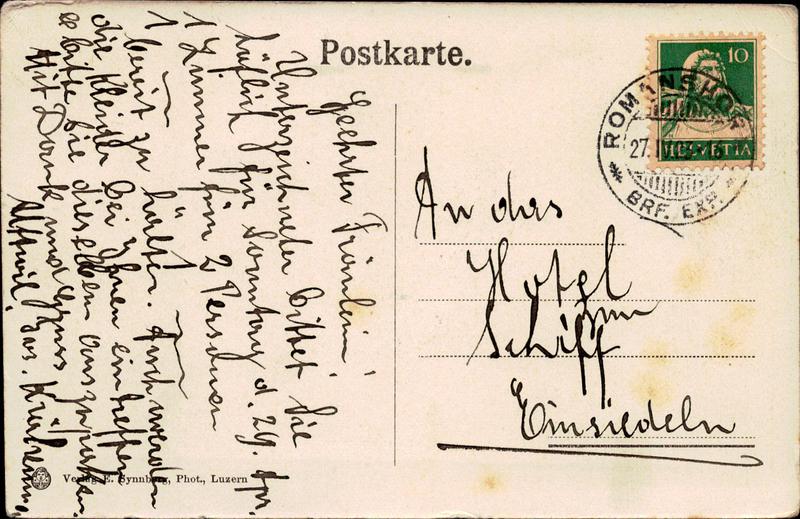 Postkarte.
10
HELVETIA
ROMANSHORN
27. IV.
BRF. EXP.
An das
Hotel
zum
Schiff
Einsiedeln
Geehrter Fräulein!
Unterzeichneter bittet Sie
höflich für Sonntag d. 29. Apr.
1 Zimmer für 2 Personen
1 bereit zu halten. Auch werden
die Kleider bei Ihnen eintreffen
& bitte Sie dieselben auszupacken.
Mit Dank und Gruss
Jos.
Verlag E. Synnberg, Phot., Luzern